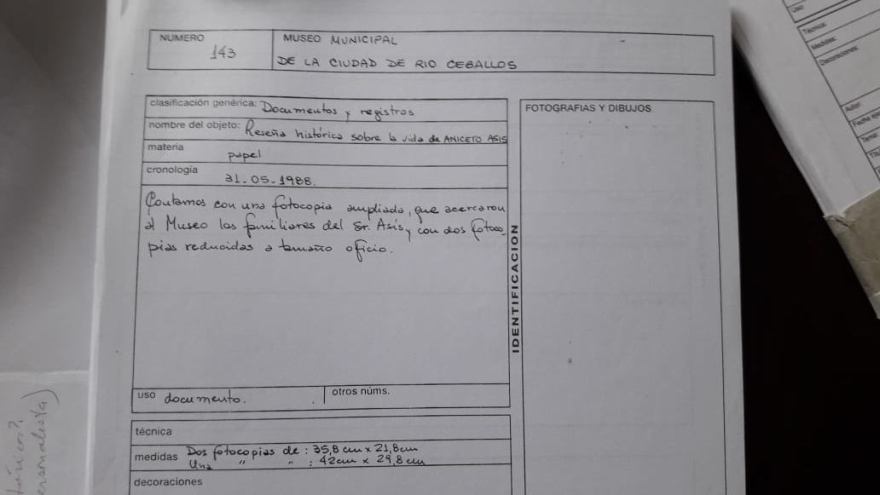 NUMERO
143
MUSEO MUNICIPAL
DE LA CIUDAD DE RIO CEBALLOS
clasificación genérica: Documentos y registros
nombre del objeto: Reseña histórica sobre la vida de ANICETO ASIS
materia papel
cronología 31-05-1988.
Contamos con una fotocopia ampliada, que acercaron
al Museo los familiares del Sr. Asís, y con dos fotoco-
pias reducidas a tamaño oficio.
uso documento.
otros núms.
técnica
medidas Dos fotocopias de: 35,8 cm x 21,8 cm
Una " " : 42 cm x 29,8 cm
decoraciones
IDENTIFICACION
FOTOGRAFIAS Y DIBUJOS
Uso:
Técnica:
Medidas:
Decoraciones:
Autor:
Tema: